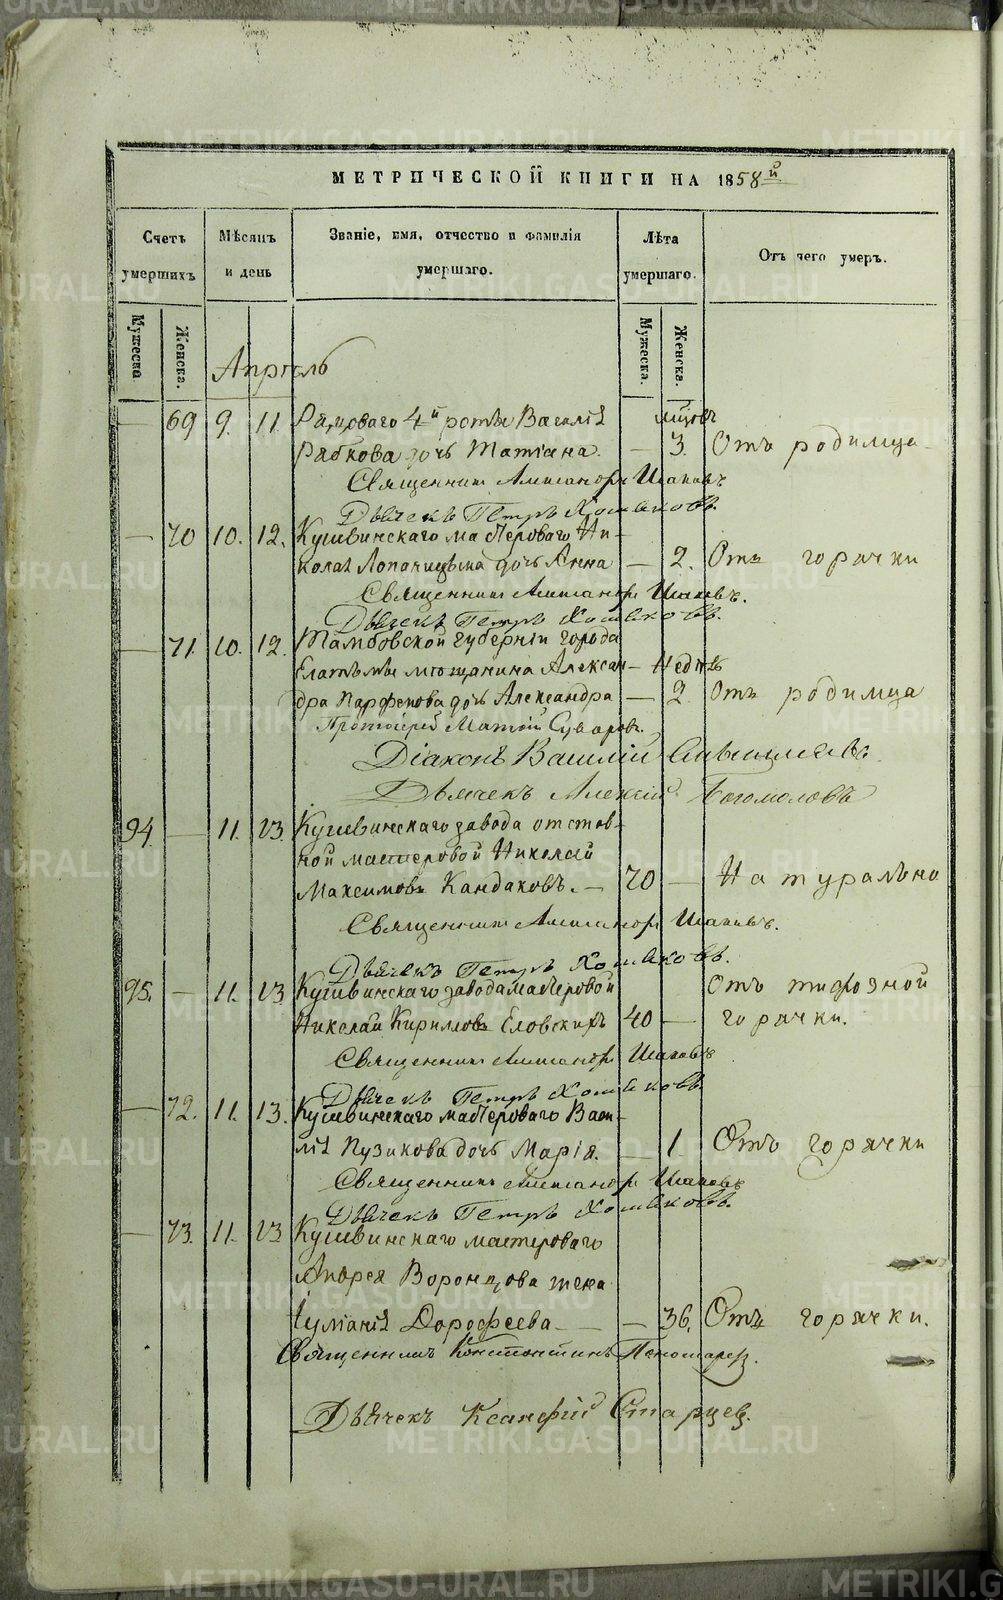 METRIKI.GASO-URAL.RU
МЕТРИЧЕСКОЙ КНИГИ НА 1858й
Счетъ умершихъ
Мѣсяцъ и день
Званіе, имя, отчество и фамилія умершаго.
Лѣта умершаго.
Отъ чего умеръ.
Мужеска
Женска.
Мужеска.
Женска.
Апрѣль
— 69 9. 11. Рядоваго 4й роты Василія мѣсяцъ
Рябкова дочь Татіана. — 3. Отъ родимца
Священникъ Александръ
Дьячекъ Петръ Хомяковъ.
— 70 10. 12. Кушвинскаго мастероваго Ни-
колая дочь Анна — 2. Отъ горячки
Священникъ Александръ
Дьячекъ Петръ Хомяковъ.
— 71. 10. 12. Тамбовской губерніи города
Елатьмы мѣщанина Алексан- Недѣль
дра Парфенова дочь Александра — 2. Отъ родимца
Протоіерей Суворовъ.
Діаконъ Василій
Дьячекъ Алексій Богомоловъ
94. — 11. 13. Кушвинскаго завода отстав-
ной мастеровой Николай
Максимовъ Кандаковъ. — 70 — Натурально
Священникъ Александръ
Дьячекъ Петръ Хомяковъ.
95. — 11. 13 Кушвинскаго завода мастеровой Отъ тифозной
Николай Кириловъ Еловскихъ 40 — горячки.
Священникъ Александръ
Дьячекъ Петръ Хомяковъ
— 72. 11. 13. Кушвинскаго мастероваго Васи-
лія Пузикова дочь Марія. — 1. Отъ горячки
Священникъ Александръ
Дьячекъ Петръ Хомяковъ.
— 73. 11. 13 Кушвинскаго мастероваго
Андрея Воронцова жена
Іуліанія Дорофеева — — 36. Отъ горячки.
Священникъ Константинъ Пономаревъ.
Дьячекъ Ксанфій Старцев.